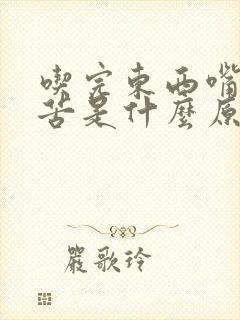 喫完東西嘴
苦是什麼原
嚴歌玲